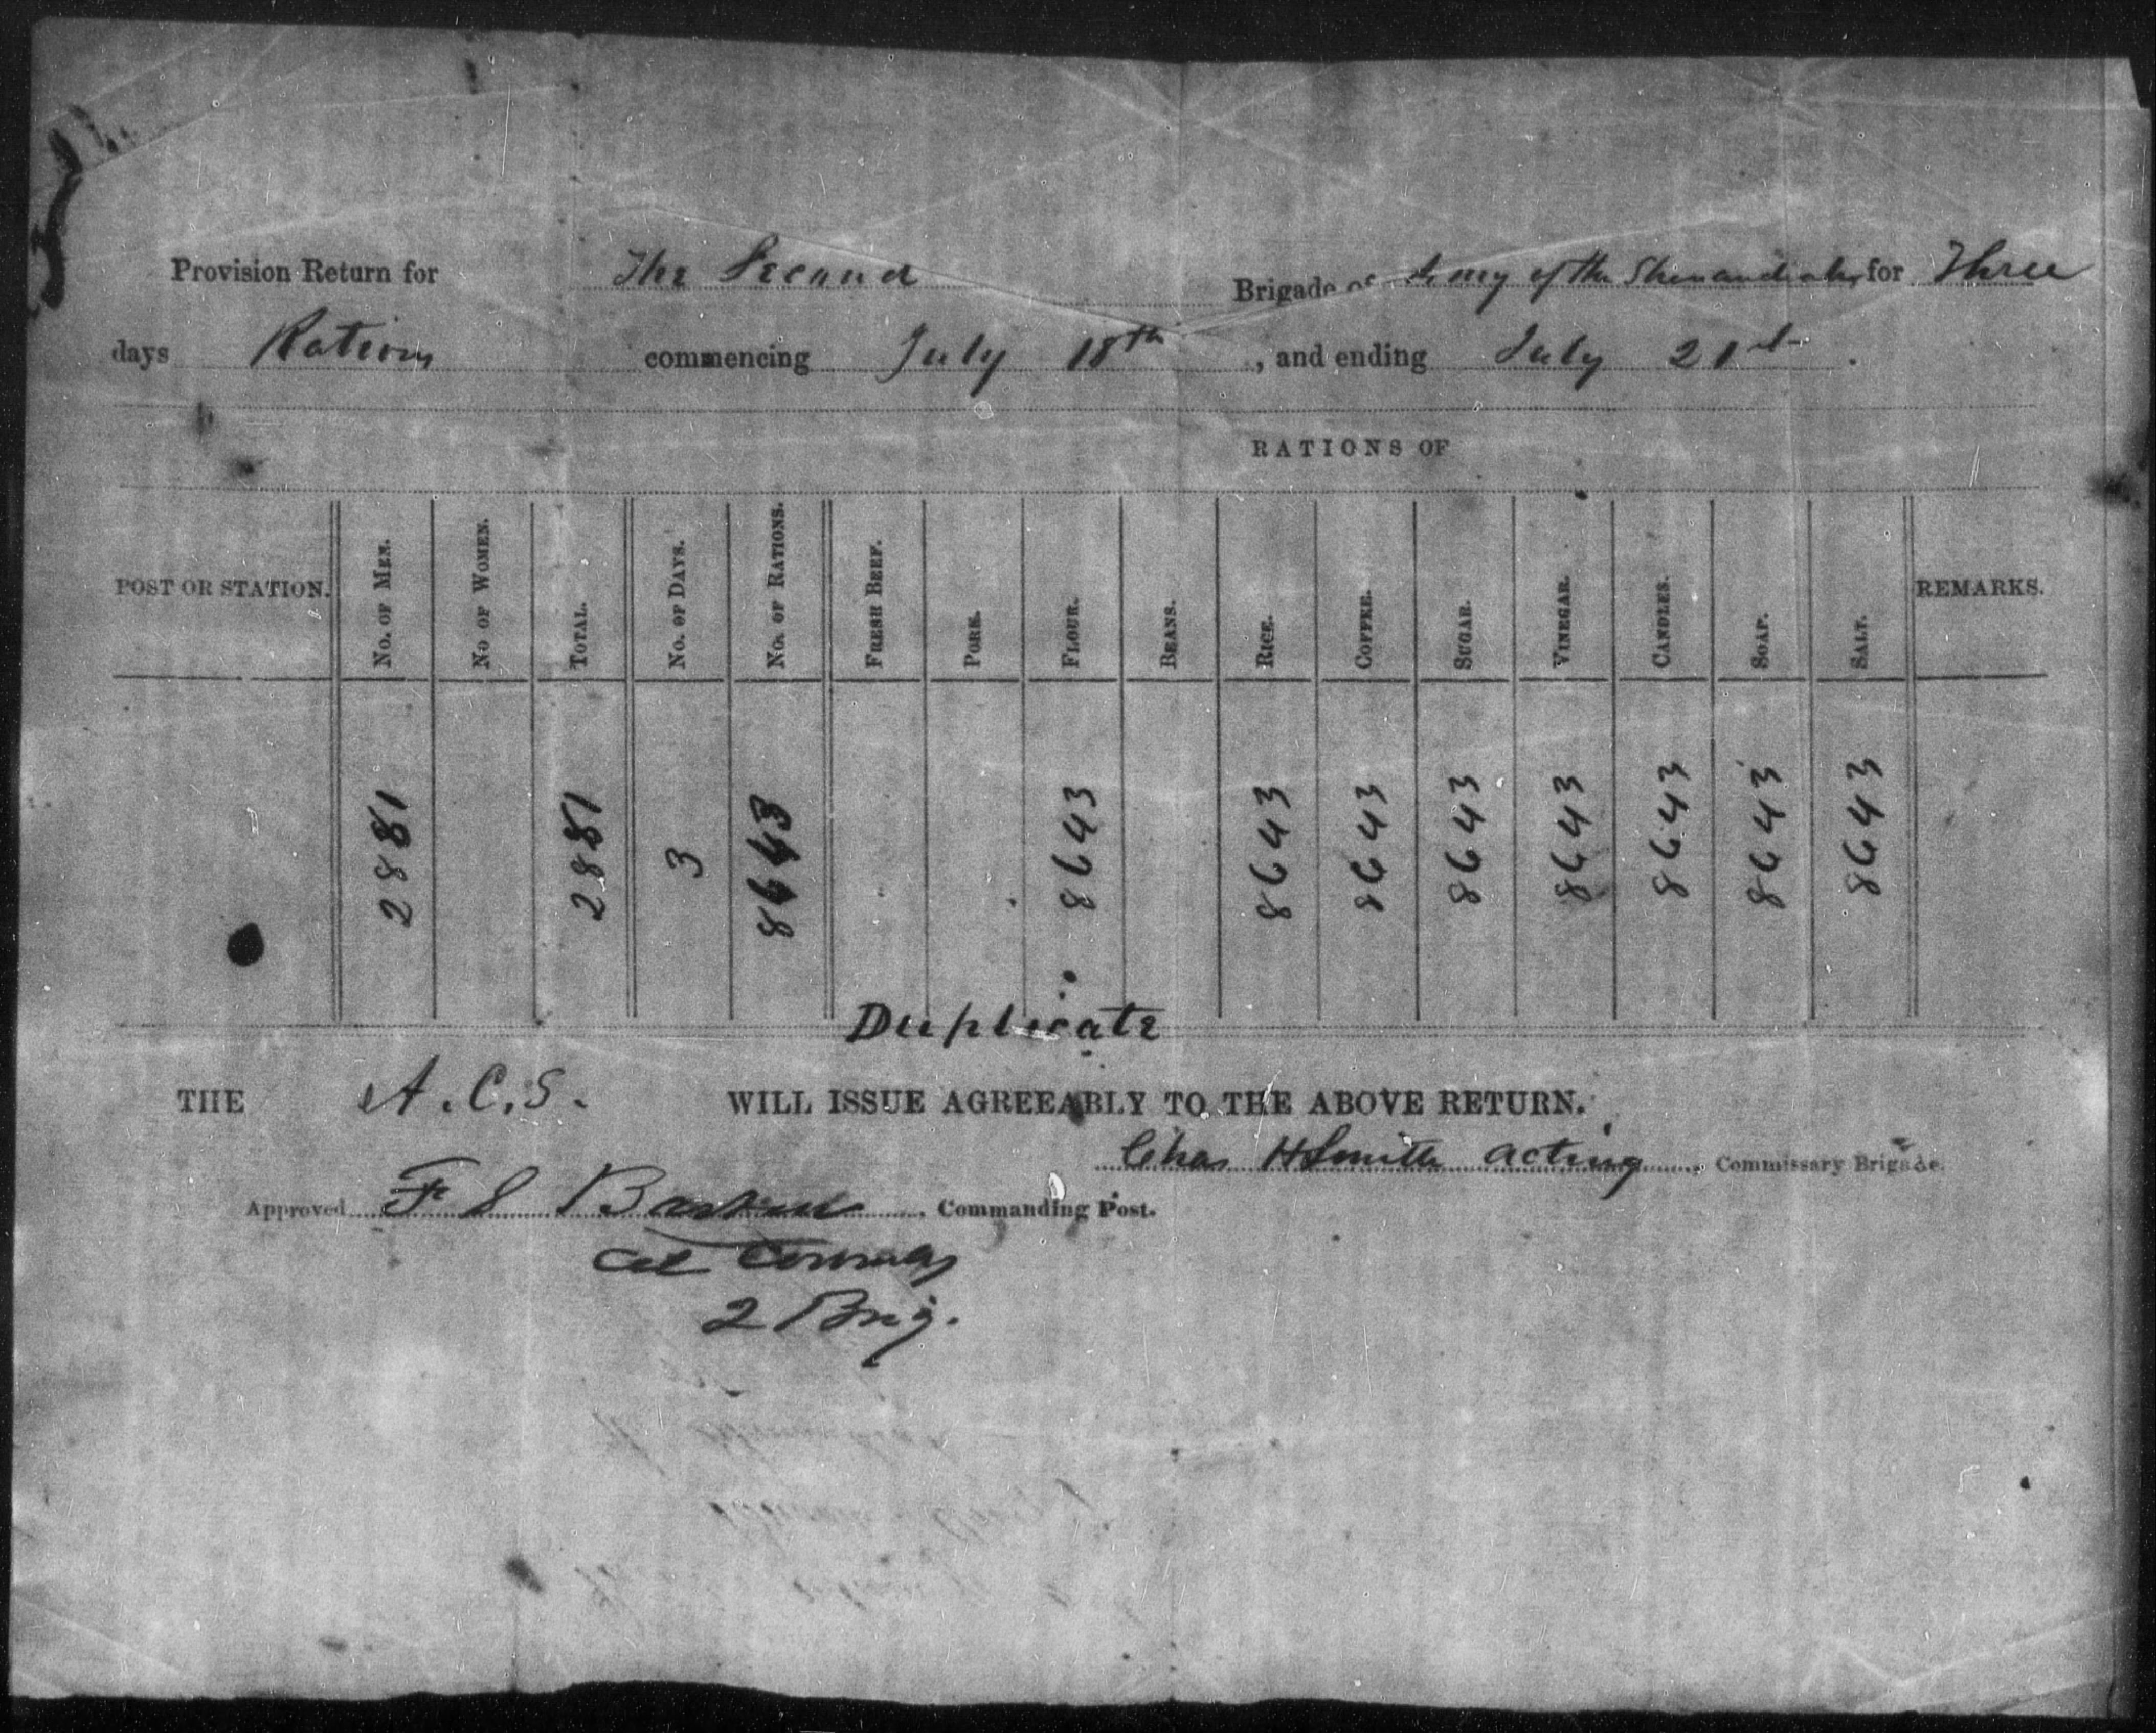 Provision Return for The Second Brigade of Army of the Shenandoah, for Three
days Rations commencing July 18th, and ending July 21st.
RATIONS OF
POST OR STATION. No. OF MEN. No OF WOMEN. TOTAL. No. OF DAYS. No. OF RATIONS. FRESH BEEF. PORK. FLOUR. BEANS. RICE. COFFEE. SUGAR. VINEGAR. CANDLES. SOAP. SALT. REMARKS.
2881 2881 3 8643 8643 8643 8643 8643 8643 8643 8643 8643
Duplicate
THE A.C.S. WILL ISSUE AGREEABLY TO THE ABOVE RETURN.
Chas H Smith acting, Commissary Brigade.
Approved F S Bartow, Commanding Post.
Col Commdg
2 Brig.